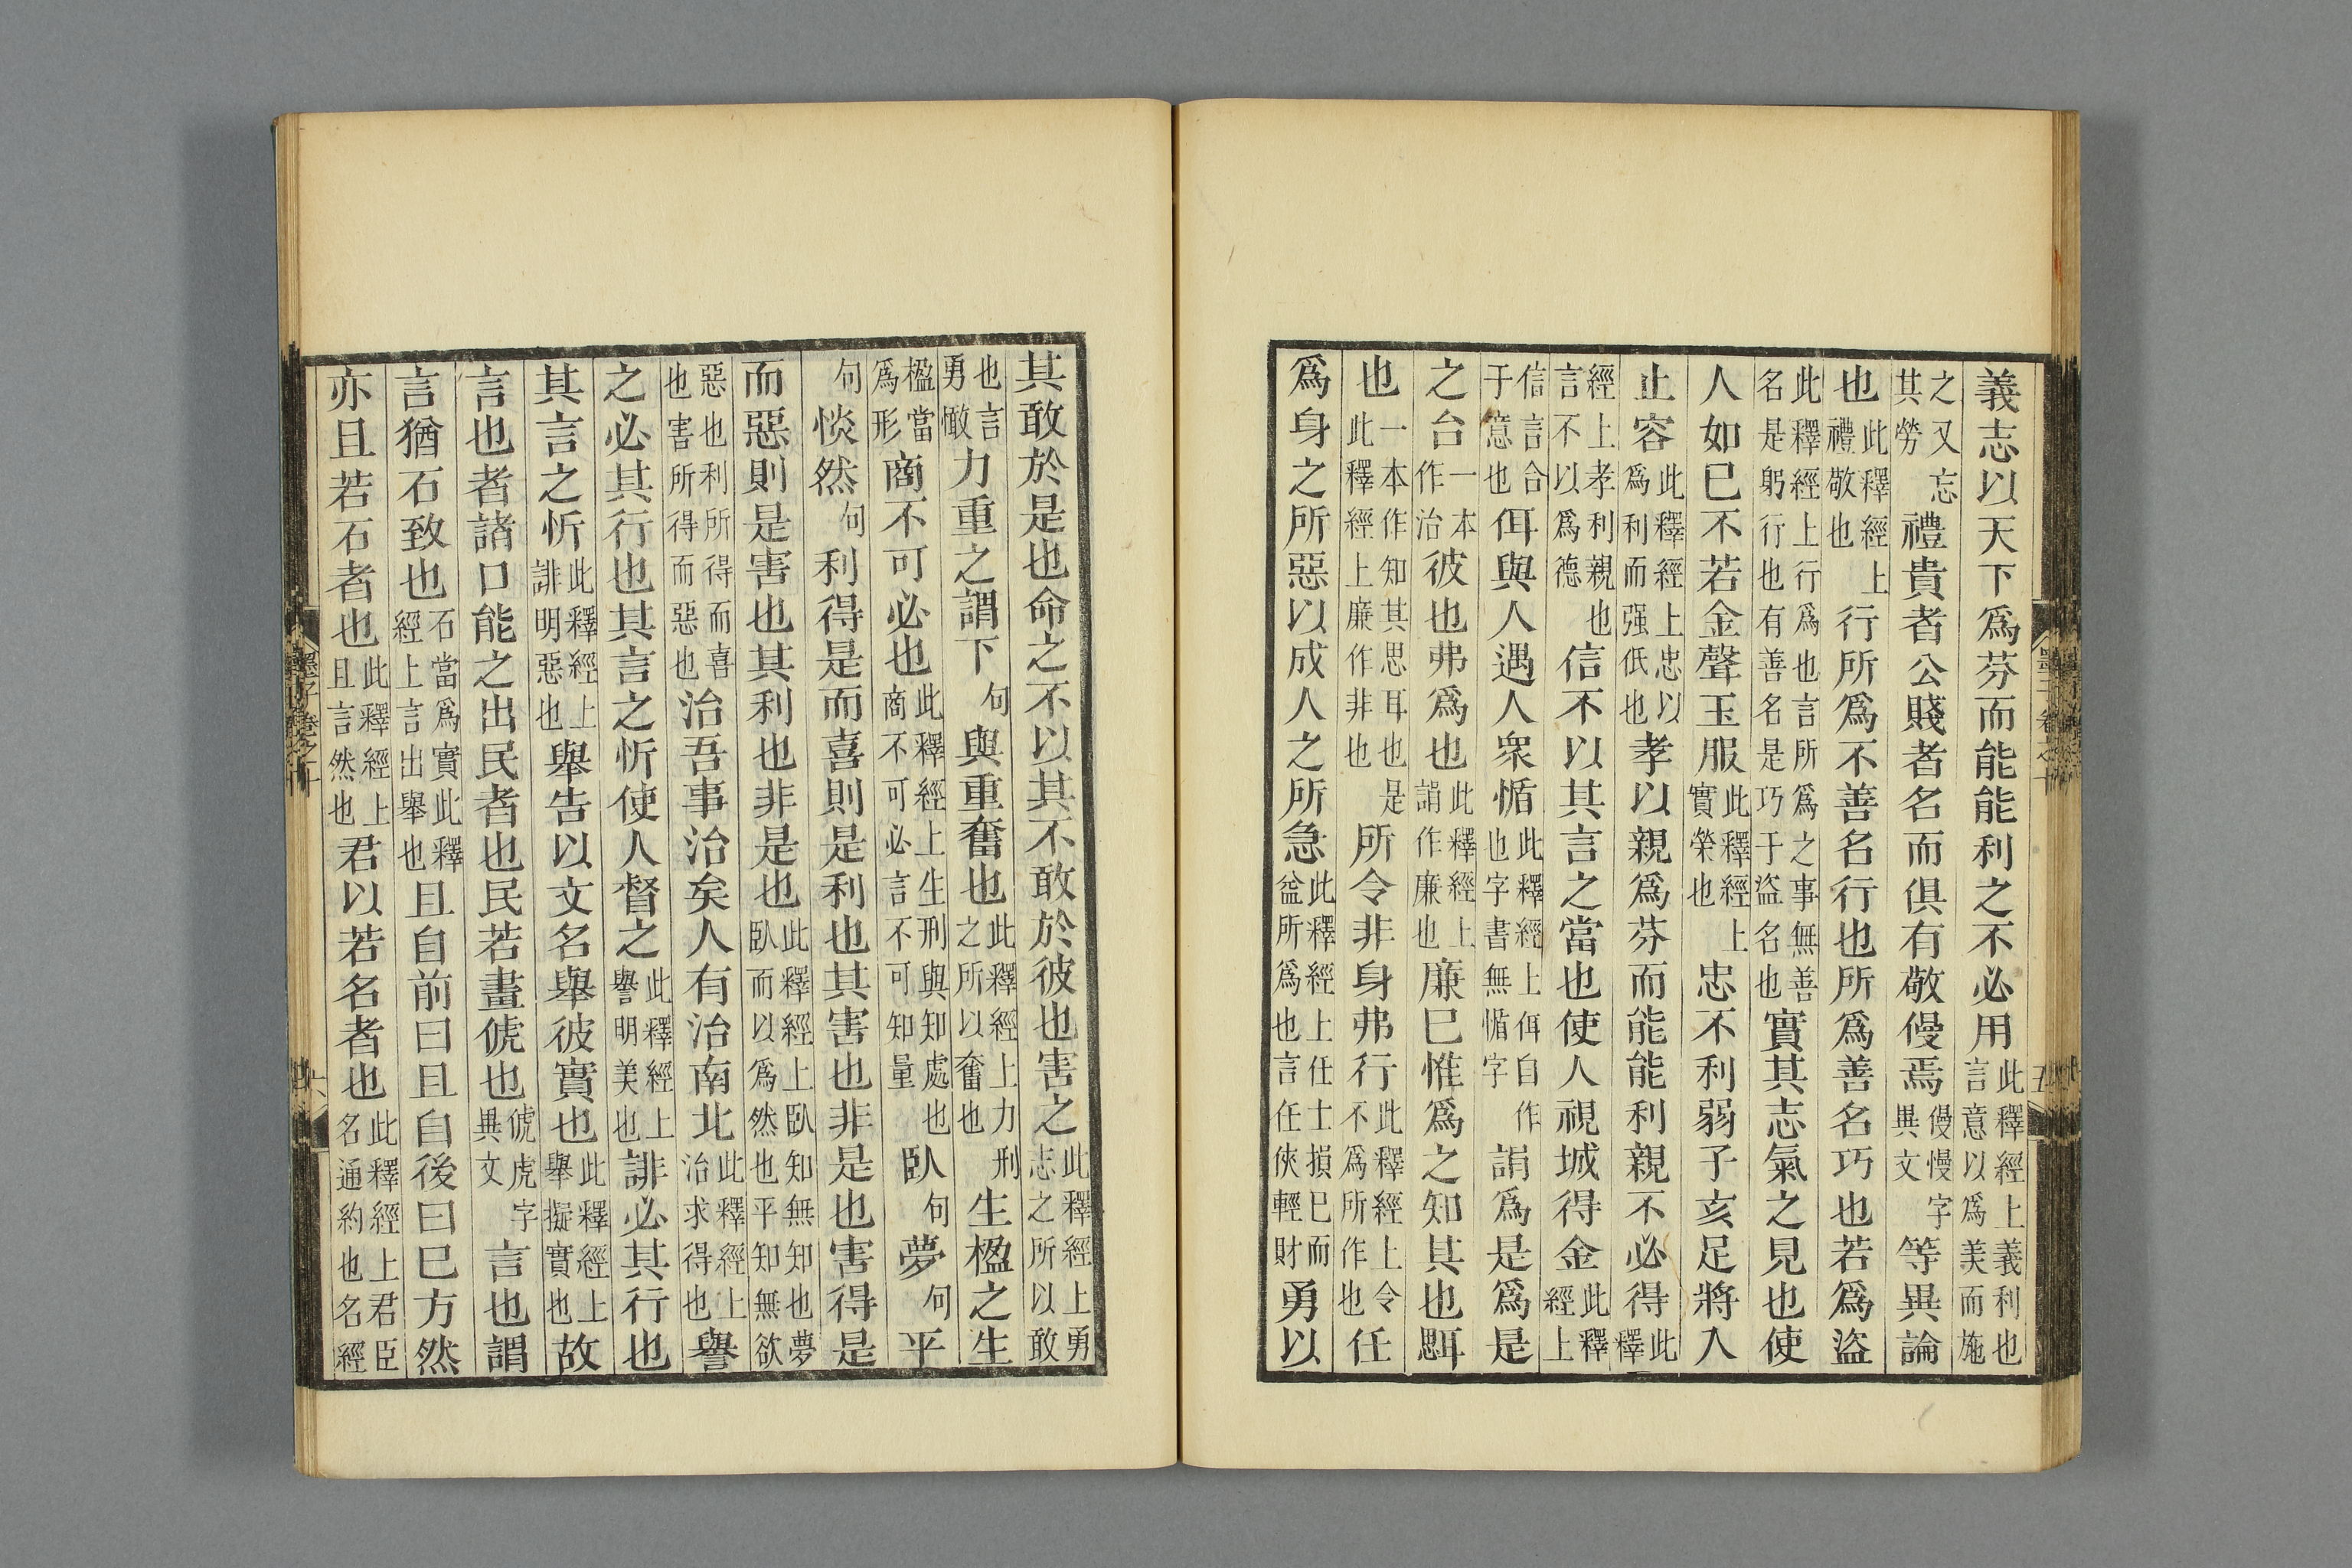 義志以天下爲芬而能能利之不必用此釋經上義利也言意以爲美而施
之又忘其勞禮貴者公賤者名而俱有敬僈焉僈慢字異文等異論
也此釋經上禮敬也行所爲不善名行也所爲善名巧也若爲盜
此釋經上行爲也言所爲之事無善名是躬行也有善名是巧于盜名也實其志氣之見也使
人如巳不若金聲玉服此釋經上實榮也忠不利弱子亥足將入
止容此釋經上忠以爲利而强低也孝以親爲芬而能能利親不必得此釋
經上孝利親也言不以爲德信不以其言之當也使人視城得金此釋經上
信言合于意也佴與人遇人衆惛此釋經上佴自作也字書無惛字詣爲是爲是
之台一本作治彼也弗爲也此釋經上詣作廉也廉巳惟爲之知其也䎶
也一本作知其思耳也是此釋經上廉作非也所令非身弗行此釋經上令不爲所作也任
爲身之所惡以成人之所急此釋經上任士損巳而益所爲也言任俠輕財勇以
墨子卷之十
五
其敢於是也命之不以其不敢於彼也害之此釋經上勇志之所以敢
也言勇憿力重之謂下句與重奮也此釋經上力刑之所以奮也生楹之生
楹當爲形商不可必也此釋經上生刑與知處也商不可必言不可知量臥句夢句平
句惔然句利得是而喜則是利也其害也非是也害得是
而惡則是害也其利也非是也此釋經上臥知無知也夢臥而以爲然也平知無欲
惡也利所得而喜也害所得而惡也治吾事治矣人有治南北此釋經上治求得也譽
之必其行也其言之忻使人督之此釋經上譽明美也誹必其行也
其言之忻此釋經上誹明惡也舉告以文名舉彼實也此釋經上舉擬實也故
言也者諸口能之出民者也民若畫俿也俿虎字異文言也謂
言猶石致也石當爲實此釋經上言出舉也且自前曰且自後曰巳方然
亦且若石者也此釋經上且言然也君以若名者也此釋經上君臣名通約也名經
墨子卷之十
六